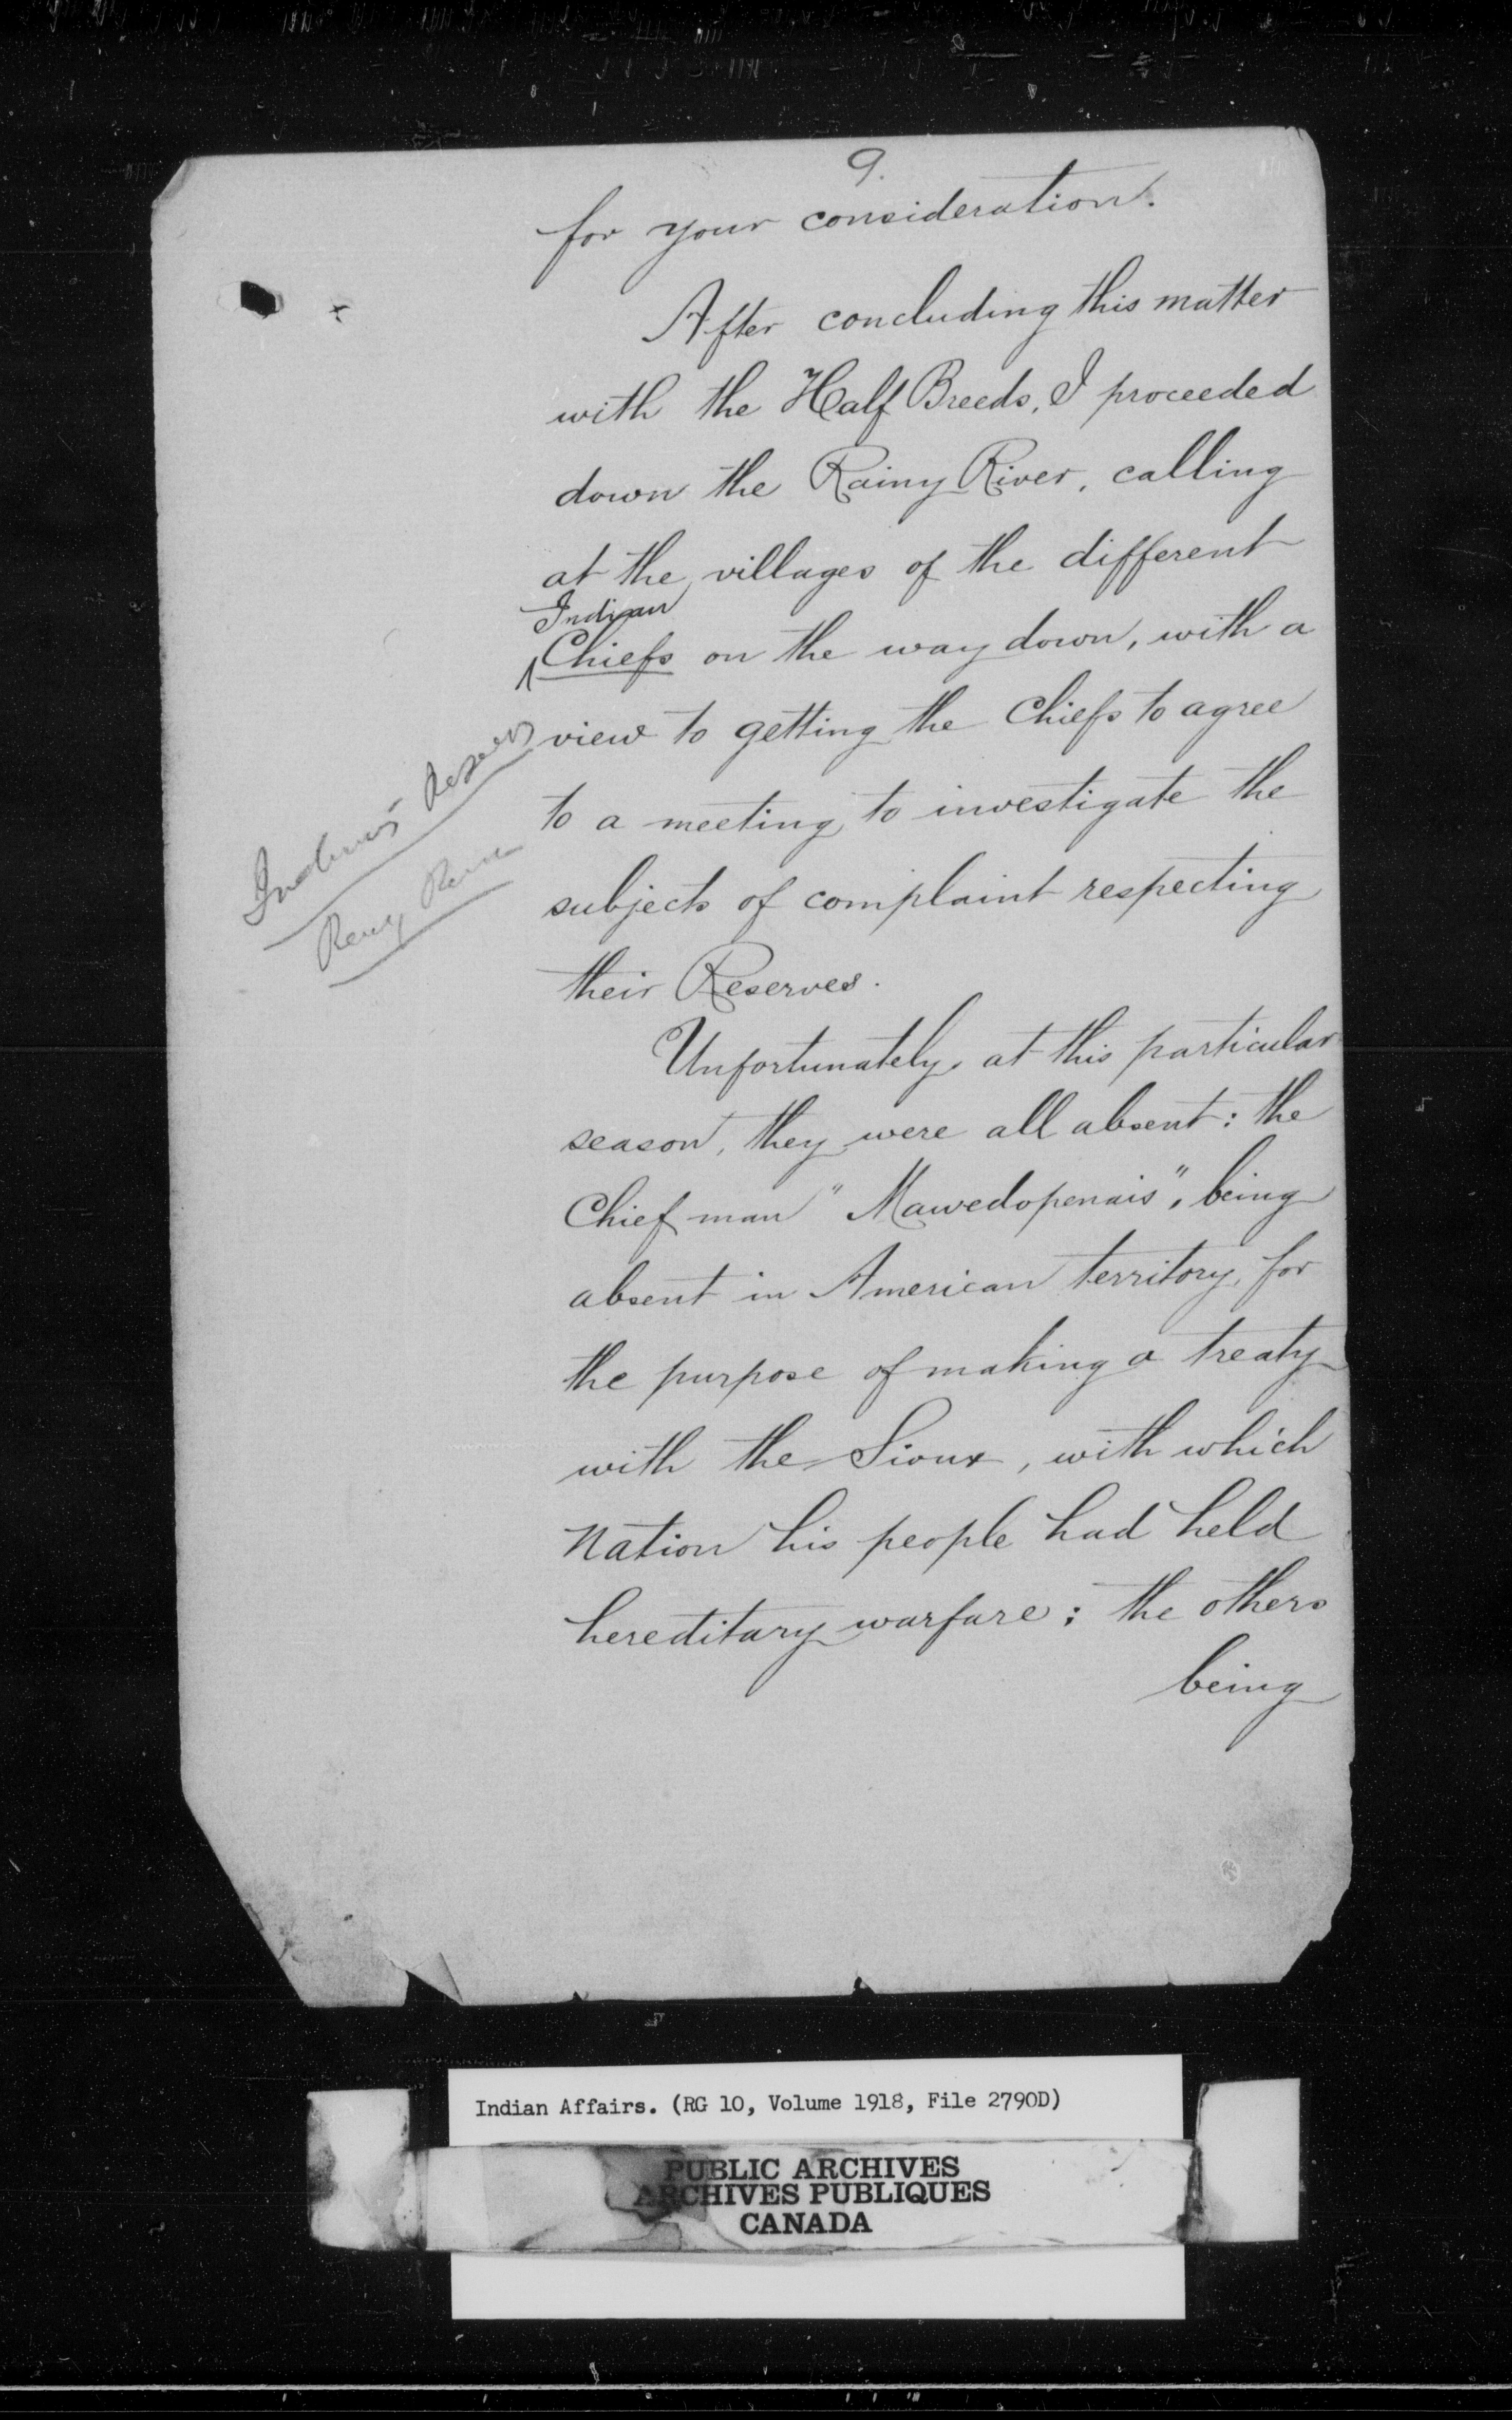 9.
for your consideration.
After concluding this matter
with the Half Breeds, I proceeded
down the Rainy River, calling
at the villages of the different
Indian
Chiefs on the way down, with a
view to getting the Chiefs to agree
to a meeting to investigate the
subjects of complaint respecting
their Reserves.
Unfortunately, at this particular
season, they were all absent: the
Chief man "Mawedopenais", being
absent in American territory, for
the purpose of making a treaty
with the Sioux, with which
Nation his people had held
hereditary warfare; the others
being
Indian Affairs. (RG 10, Volume 1918, File 2790D)
PUBLIC ARCHIVES
ARCHIVES PUBLIQUES
CANADA